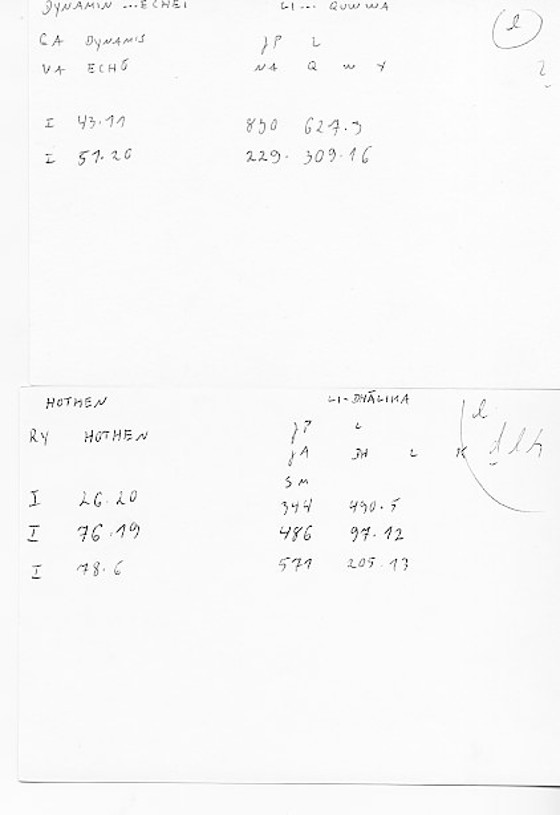 DYNAMIN ...ECHEI LI... QUWWA
CA DYNAMIS jP L
VA ECHŌ NA Q W Y
l
I 43.11 830 627.3
I 51.20 229. 309.16
HOTHEN LI-DHĀLIKA
l
RY HOTHEN jP L
jA DH L K dlk
SM
I 26.20 344 490.5
I 76.19 486 97.12
I 78.6 571 205.13